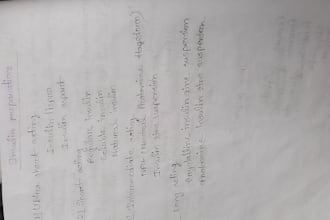 Insulin preparations
1) Ultra short acting
Insulin lispro
Insulin aspart
2) Short acting
Regular insulin
Soluble insulin
Natural insulin
Intermediate acting
NPH (Neutral Protamine Hagedorn)
Insulin zinc suspension
Long acting
insulin zinc suspension
Protamine insulin zinc suspension